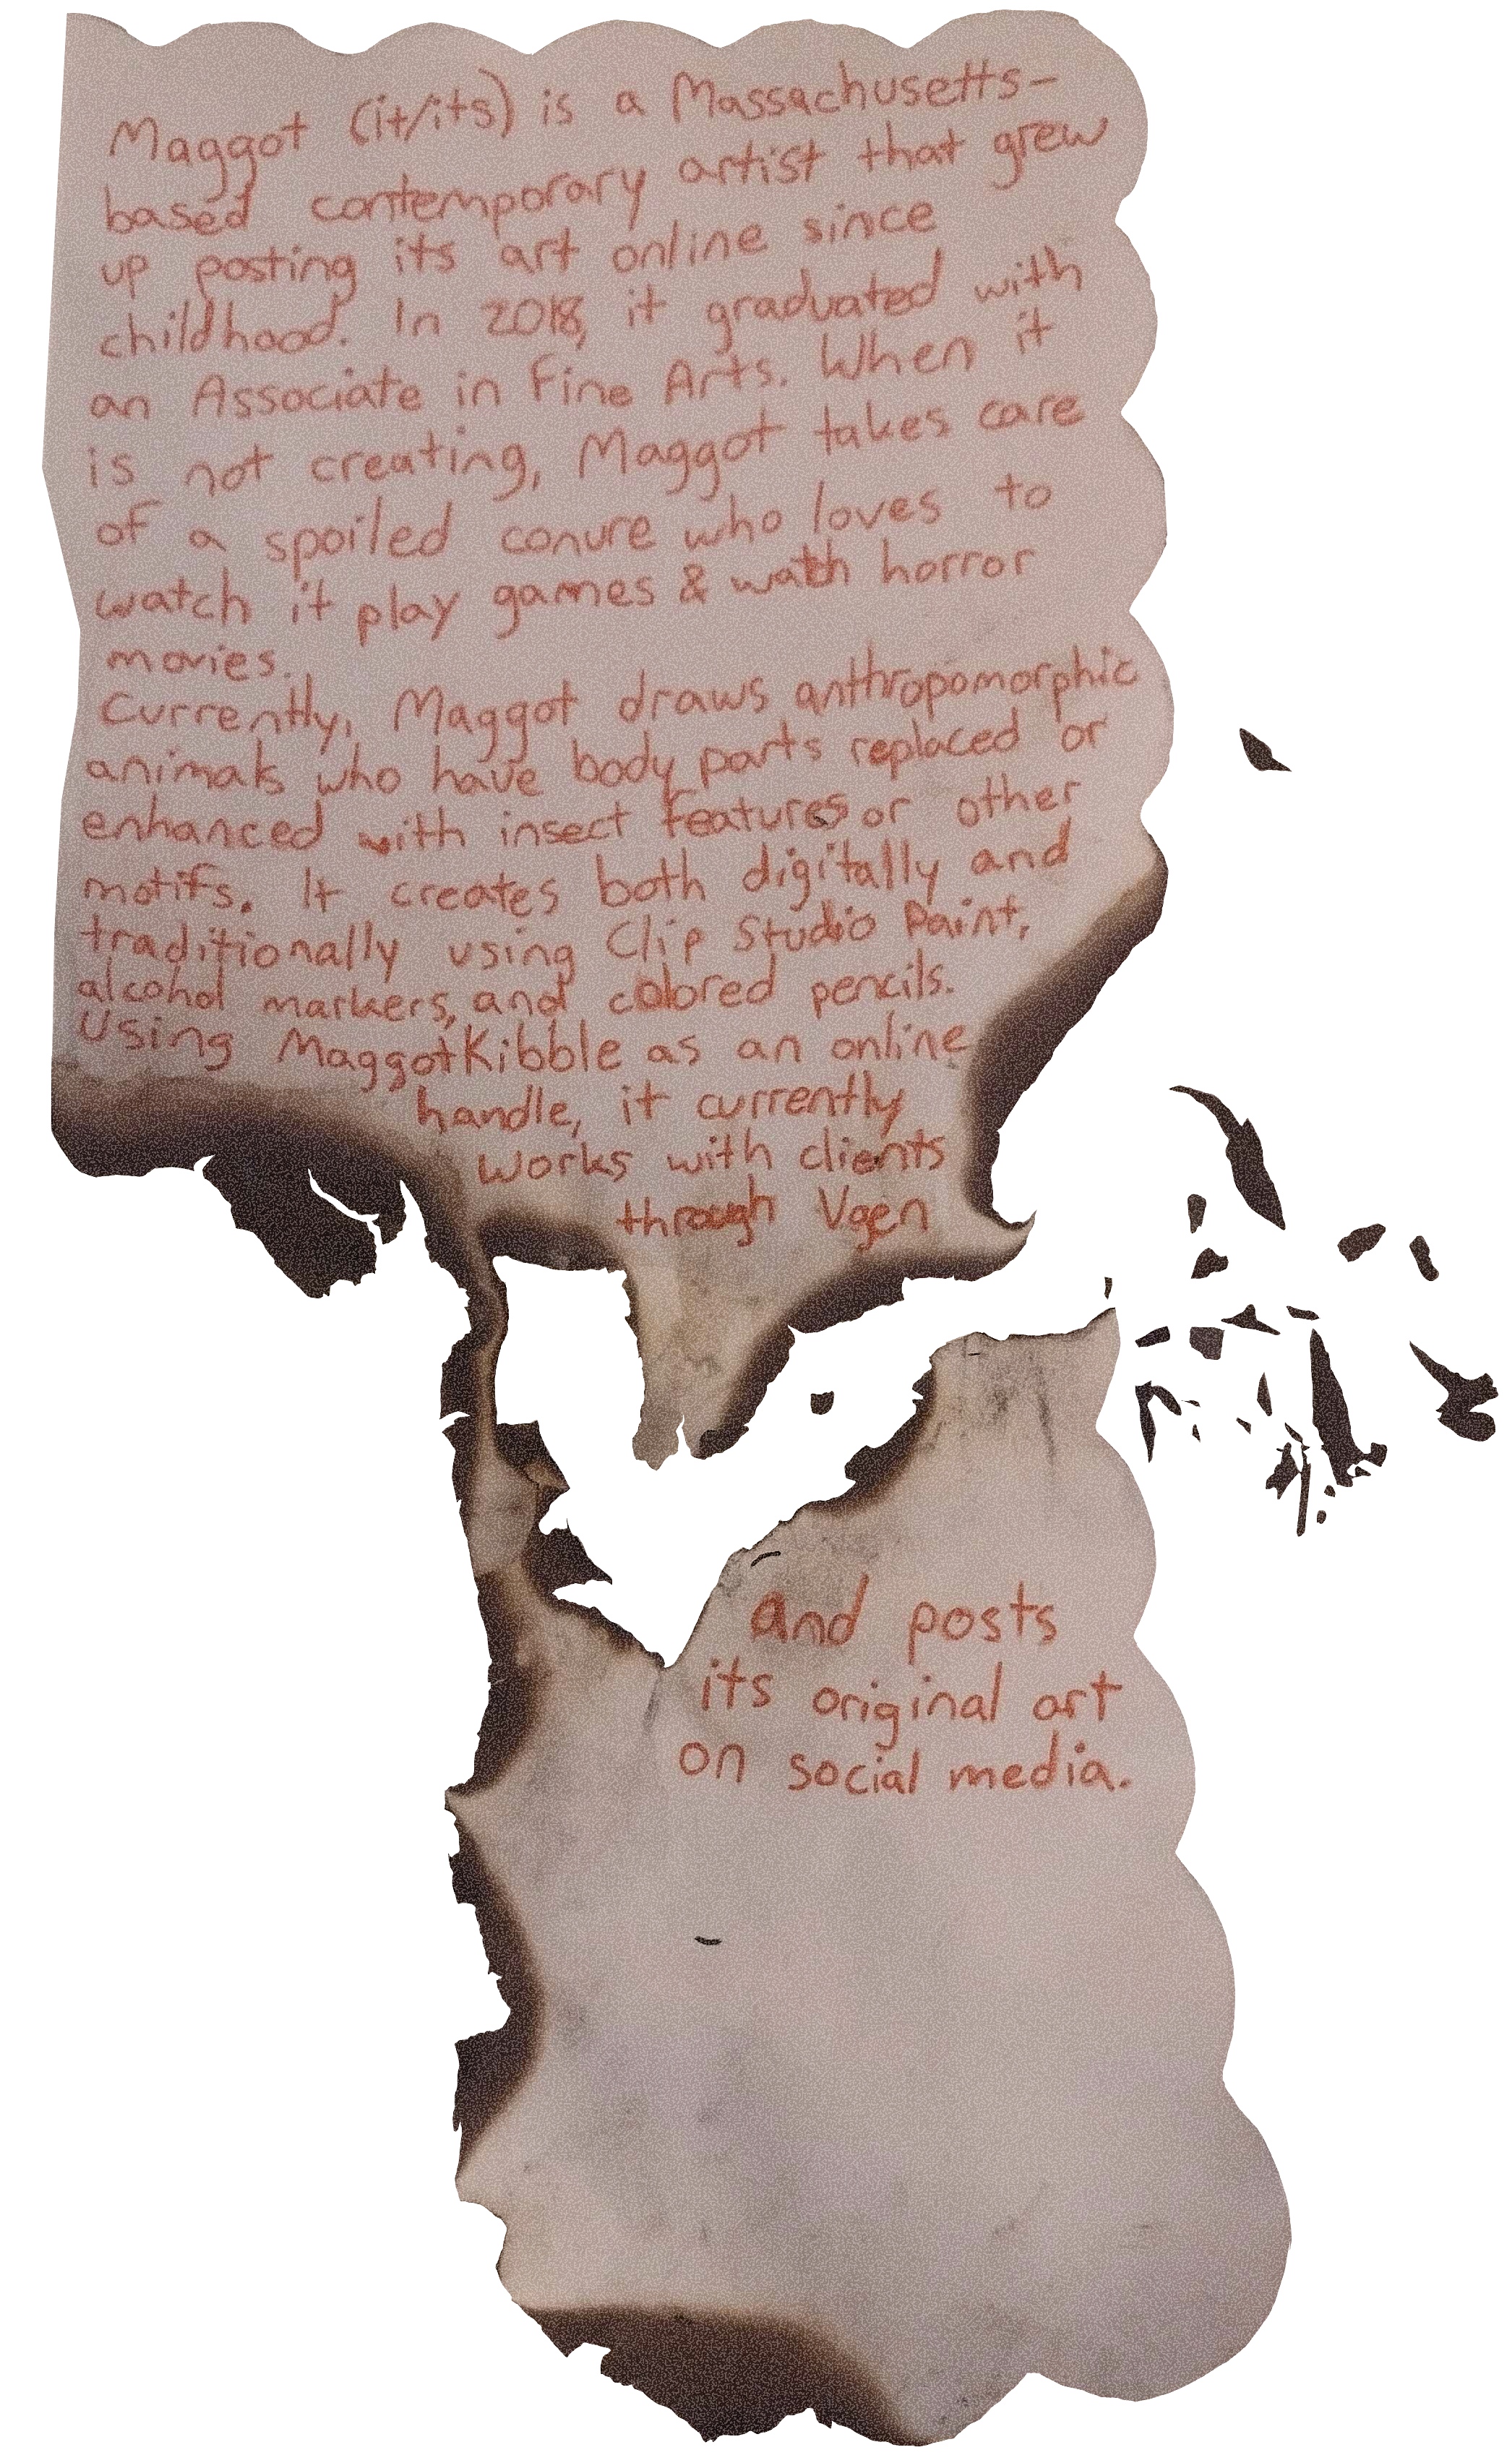 Maggot (it/its) is a Massachusetts-
based contemporary artist that grew
up posting its art online since
childhood. In 2018, it graduated with
an Associate in Fine Arts. When it
is not creating, Maggot takes care
of a spoiled conure who loves to
watch it play games & watch horror
movies.
Currently, Maggot draws anthropomorphic
animals who have body parts replaced or
enhanced with insect features or other
motifs. It creates both digitally and
traditionally using Clip Studio Paint,
alcohol markers, and colored pencils.
Using MaggotKibble as an online
handle, it currently
works with clients
through Vgen
and posts
its original art
on social media.